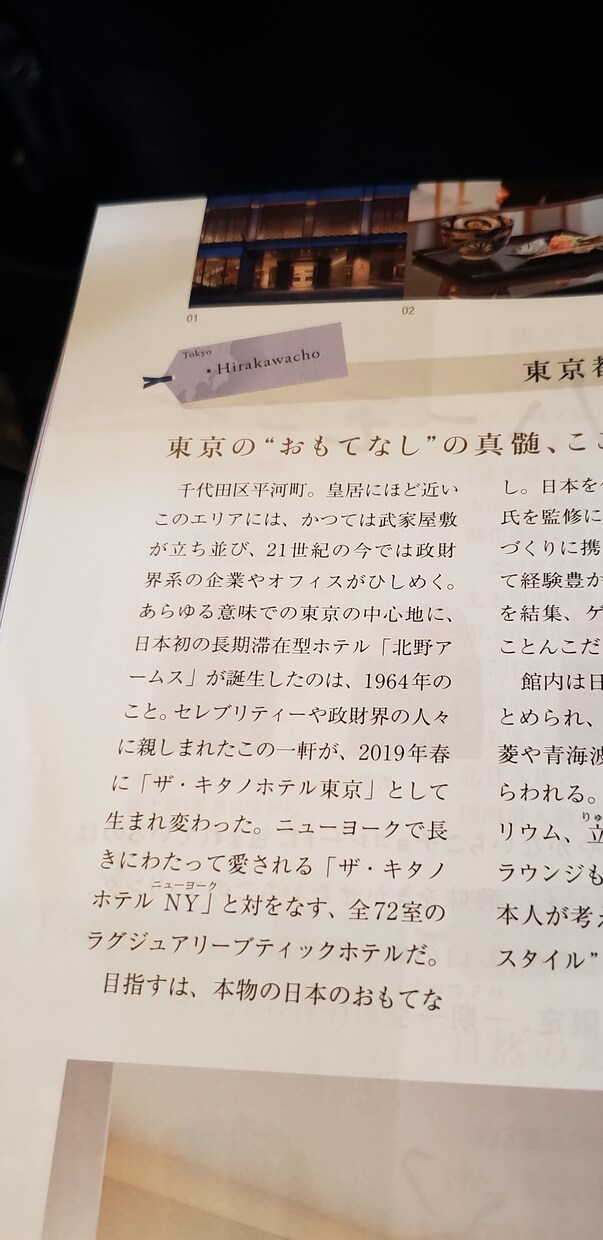 01
02
Tokyo
・Hirakawacho
東京都
東京の“おもてなし”の真髄、ここ
千代田区平河町。皇居にほど近い
このエリアには、かつては武家屋敷
が立ち並び、21世紀の今では政財
界系の企業やオフィスがひしめく。
あらゆる意味での東京の中心地に、
日本初の長期滞在型ホテル「北野ア
ームス」が誕生したのは、1964年の
こと。セレブリティーや政財界の人々
に親しまれたこの一軒が、2019年春
に「ザ・キタノホテル東京」として
生まれ変わった。ニューヨークで長
きにわたって愛される「ザ・キタノ
ニューヨーク
ホテル NY」と対をなす、全72室の
ラグジュアリーブティックホテルだ。
目指すは、本物の日本のおもてな
し。日本を
氏を監修に
づくりに携
て経験豊か
を結集、ゲ
ことんこだ
館内は日
とめられ、
菱や青海波
らわれる。
りゅ
リウム、立
ラウンジも
本人が考え
スタイル”